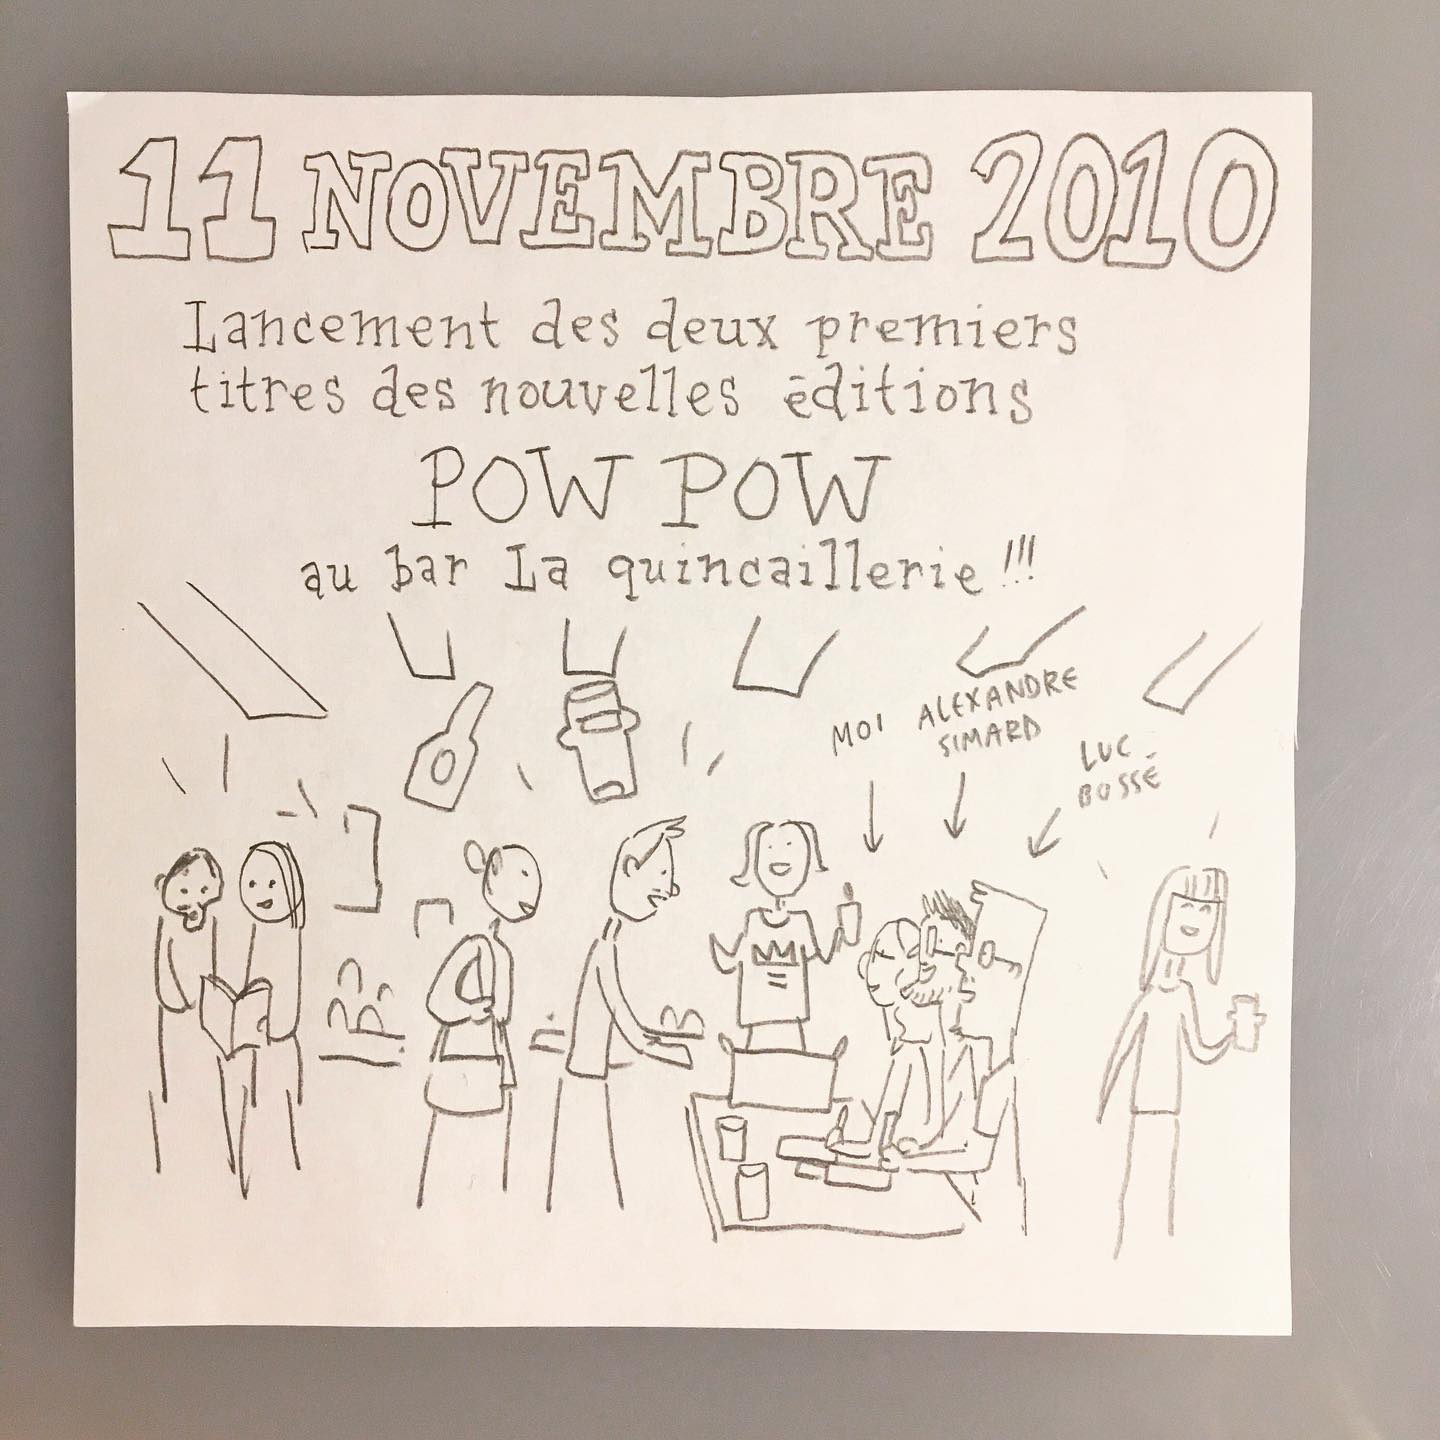 11 NOVEMBRE 2010
Lancement des deux premiers
titres des nouvelles éditions
POW POW
au bar La quincaillerie !!!
MOI
ALEXANDRE
SIMARD
LUC
BOSSÉ